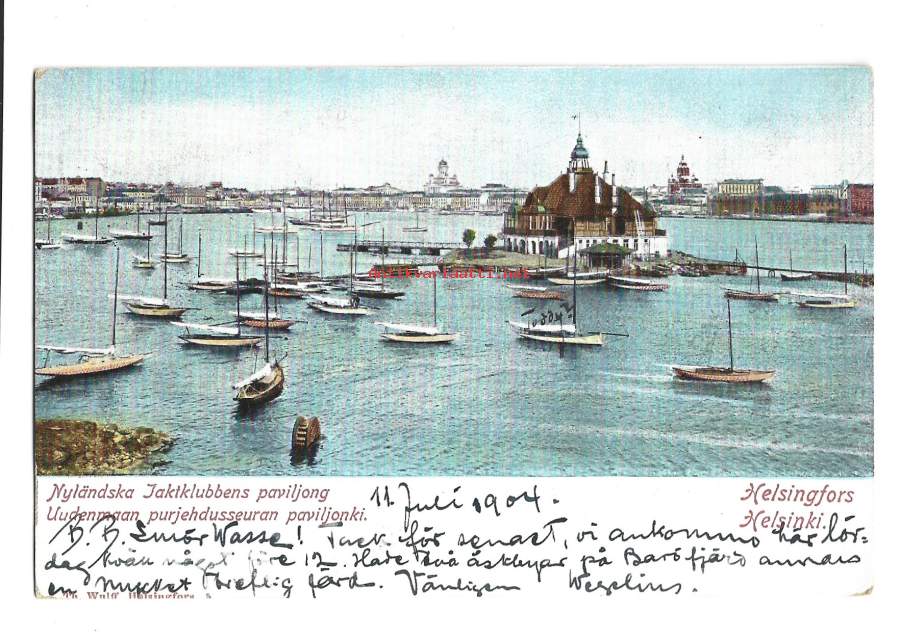 antikvariaatti.net
Nyländska Jaktklubbens paviljong
Uudenmaan purjehdusseuran paviljonki.
Helsingfors
Helsinki.
11 Juli 1904.
B. B. Smör Wasse! Tack för senast, vi ankommo här lör-
dag kväll något före 12. Hade två åskbyar på Barösfjärd annars
en mycket treflig färd. Vänligen Wegelius.
Th. Wulff, Helsingfors